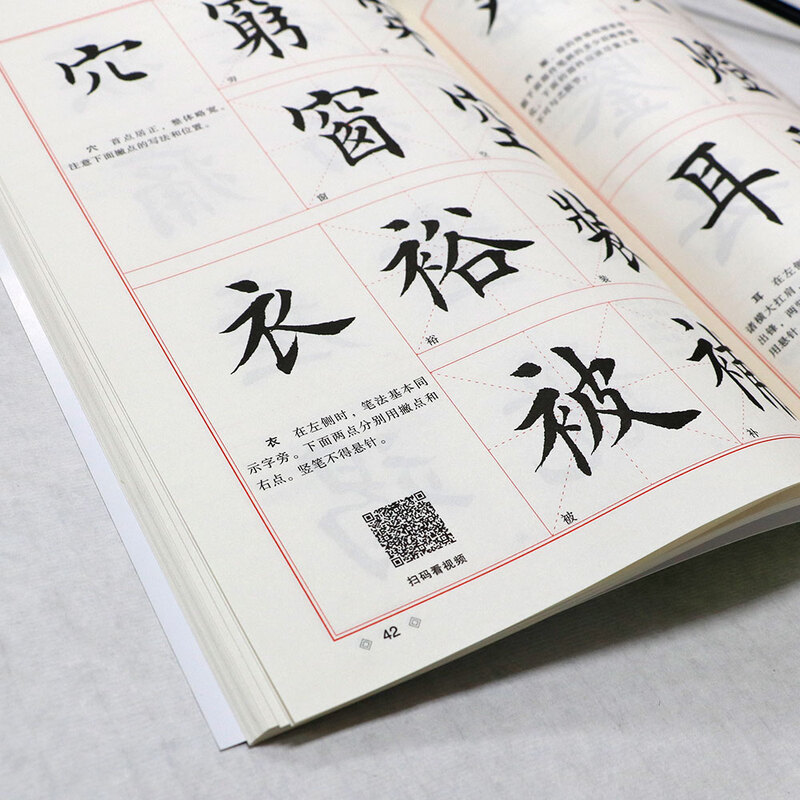 穴 窮
穷
穴 首点居正，整体略宽。
注意下面撇点的写法和位置。
窗 空
窗
空
衣 裕 裝
裕
装
衣 在左侧时，笔法基本同
示字旁。下面两点分别用撇点和
右点。竖笔不得悬针。
被 補
被
补
扫码看视频
42
燈
耳
耳 在左
诸横大扛肩
出锋，两
用悬针